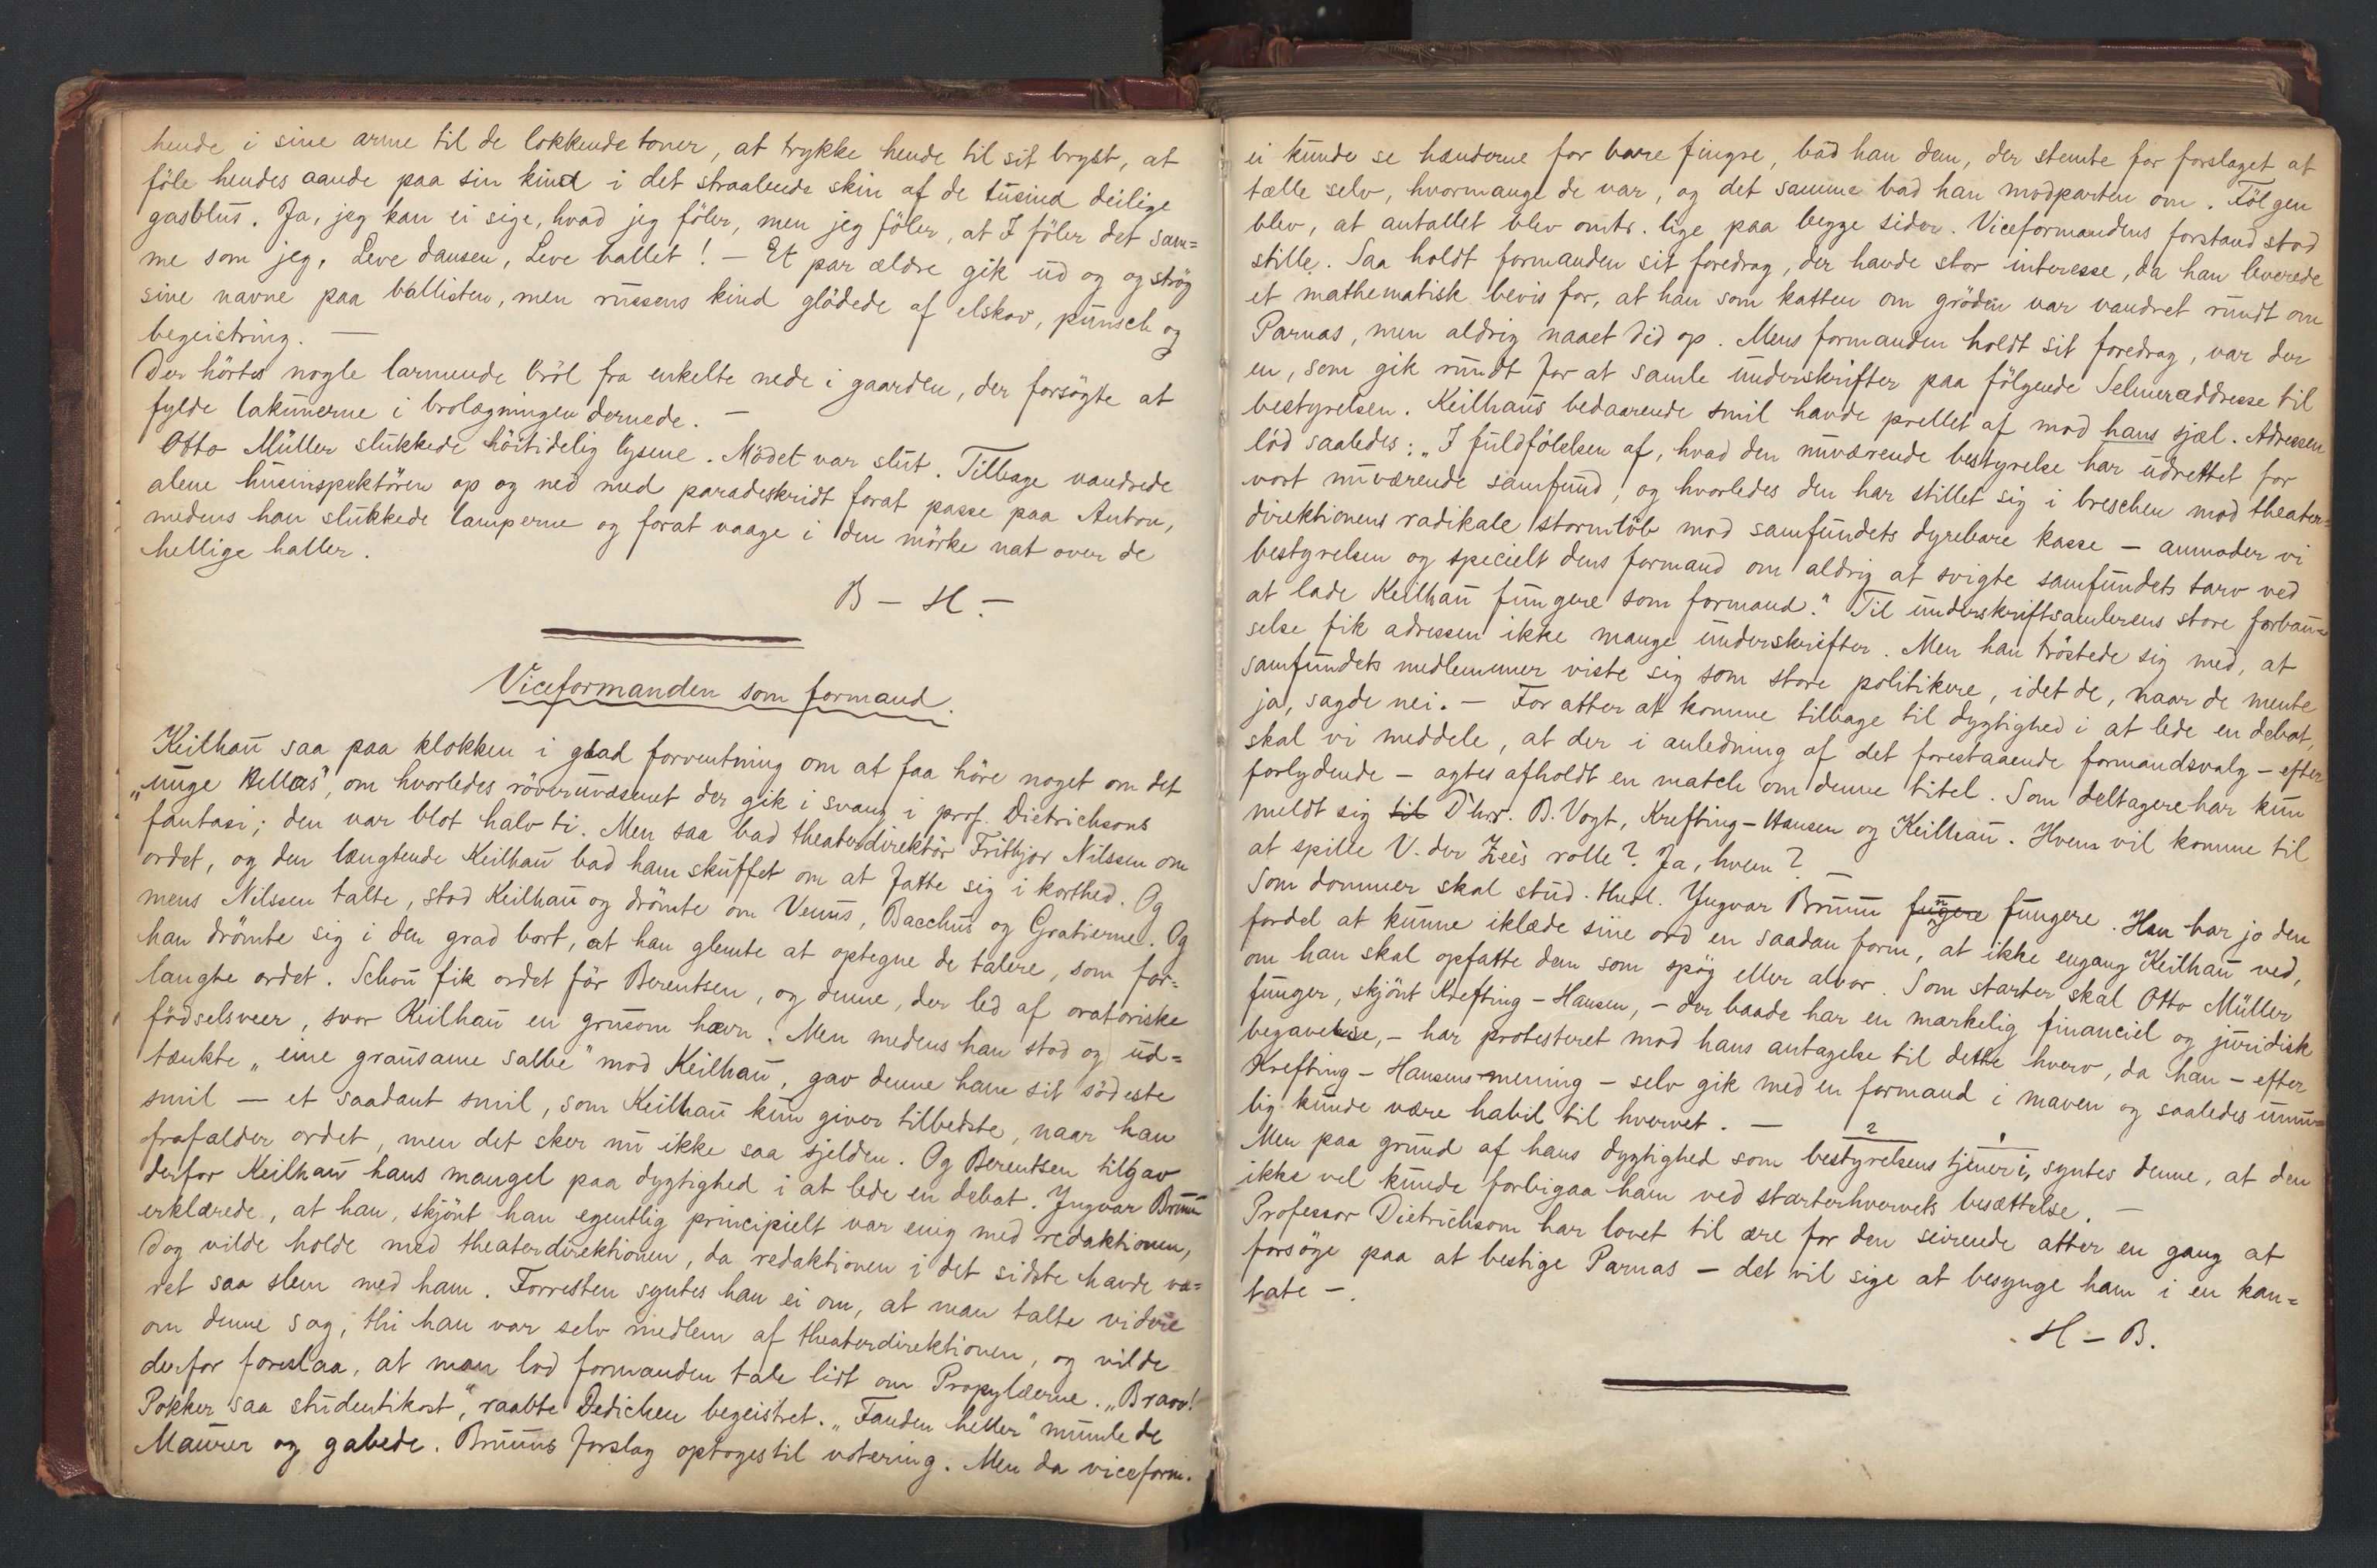 hende i sine arme til de lokkende toner, at trykke hende til sit bryst, at
föle hendes aande paa sin kind i det straalende skin af de tusind deilige
gasblus. Ja, jeg kan ei sige, hvad jeg föler, men jeg föler, at I föler det sam=
me som jeg. Leve dansen, Leve ballet! — Et par ældre gik ud og og strög
sine navne paa ballisten, men russens kind glödede af elskov, punsch og
begeistring. —
Der hörtes nogle larmende bröl fra enkelte nede i gaarden, der forsögte at
fylde lakunerne i brolægningen dernede. —
Otto Müller slukkede höitidelig lysene. Mödet var slut. Tilbage vandrede
alene husinspektören op og ned med paradeskridt forat passe paa Anton,
medens han slukkede lamperne og forat vaage i den mörke nat over de
hellige haller.
B — H. —
Viceformanden som formand.
Keilhau saa paa klokken i glad forventning om at faa höre noget om det
„unge Hellas", om hvorledes röveruvæsenet der gik i svang i prof. Dietrichsons
fantasi; den var blot halv ti. Men saa bad theaterdirektör Frithjov Nilssen om
ordet, og den længtende Keilhau bad ham skuffet om at fatte sig i korthed. Og
mens Nilssen talte, stod Keilhau og drömte om Venus, Bacchus og Gratierne. Og
han drömte sig i den grad bort, at han glemte at optegne de talere, som for=
langte ordet. Schou fik ordet för Berentsen, og denne, der led af oratoriske
födselsveer, svor Keilhau en grusom hævn. Men medens han stod og ud=
tænkte „eine grausame salbe" mod Keilhau, gav denne ham sit södeste
smil — et saadant smil, som Keilhau kun giver tilbedste, naar han
frafalder ordet, men det sker nu ikke saa sjelden. Og Berentsen tilgav
derfor Keilhau hans mangel paa dygtighed i at lede en debat. Yngvar Bruun
erklærede, at han, skjönt han egentlig principielt var enig med redaktionen,
dog vilde holde med theaterdirektionen, da redaktionen i det sidste havde væ=
ret saa slem med ham. Forresten syntes han ei om, at man talte videre
om denne sag, thi han var selv medlem af theaterdirektionen, og vilde
derfor foreslaa, at man lod formanden tale lidt om Propylæerne. „Bravo!
Pokker saa studentikost", raabte Dedichen begeistret. „Fanden heller" mumlede
Maurer og gabede. Bruuns forslag optoges til votering. Men da viceform.
ei kunde se hænderne for bare fingre, bad han dem, der stemte for forslaget at
tælle selv, hvormange de var, og det samme bad han modparten om. Fölgen
blev, at antallet blev omtr. lige paa begge sider. Viceformandens forstand stod
stille. Saa holdt formanden sit foredrag, der havde stor interesse, da han leverede
et mathematisk bevis for, at han som katten om gröden var vandret rundt om
Parnas, men aldrig naaet did op. Mens formanden holdt sit foredrag, var der
en, som gik rundt for at samle underskrifter paa fölgende Selmeraddresse til
bestyrelsen. Keilhaus bedaarende smil havde prellet af mod hans sjæl. Adressen
löd saaledes: „I fuldfölelsen af, hvad den nuværende bestyrelse har udrettet for
vort nuværende samfund, og hvorledes den har stillet sig i breschen mod theater=
direktionens radikale stormlöb mod samfundets dyrebare kasse — anmoder vi
bestyrelsen og specielt dens formand om aldrig at svigte samfundets tarv ved
at lade Keilhau fungere som formand." Til underskriftsamlerens store forbau=
selse fik adressen ikke mange underskrifter. Men han tröstede sig med, at
samfundets medlemmer viste sig som store politikere, idet de, naar de mente
ja, sagde nei. — For atter at komme tilbage til dygtighed i at lede en debat,
skal vi meddele, at der i anledning af det forestaaende formandsvalg — efter
forlydende — agtes afholdt en match om denne titel. Som deltagere har kun
meldt sig til D'hrr. B. Vogt, Krefting-Hansen og Keilhau. Hvem vil komme til
at spille V. der Zee's rolle? Ja, hvem? —
Som dommer skal stud. theol. Yngvar Bruun fungere fungere. Han har jo den
fordel at kunne iklæde sine ord en saadan form, at ikke engang Keilhau ved,
om han skal opfatte dem som spög eller alvor. Som starter skal Otto Müller
funger, skjönt Krefting-Hansen, — der baade har en mærkelig financiel og juridisk
begavelse, — har protesteret mod hans antagelse til dette hverv, da han — efter
Krefting-Hansens mening — selv gik med en formand i maven og saaledes umu=
lig kunde være habil til hvervet. —
Men paa grund af hans dygtighed som bestyrelsens tjener i, syntes denne, at den
ikke vel kunde forbigaa ham ved starterhvervets besættelse. —
Professor Dietrichson har lovet til ære for den seirende atter en gang at
forsöge paa at bestige Parnas — det vil sige at besynge ham i en kan=
tate —.
H — B.